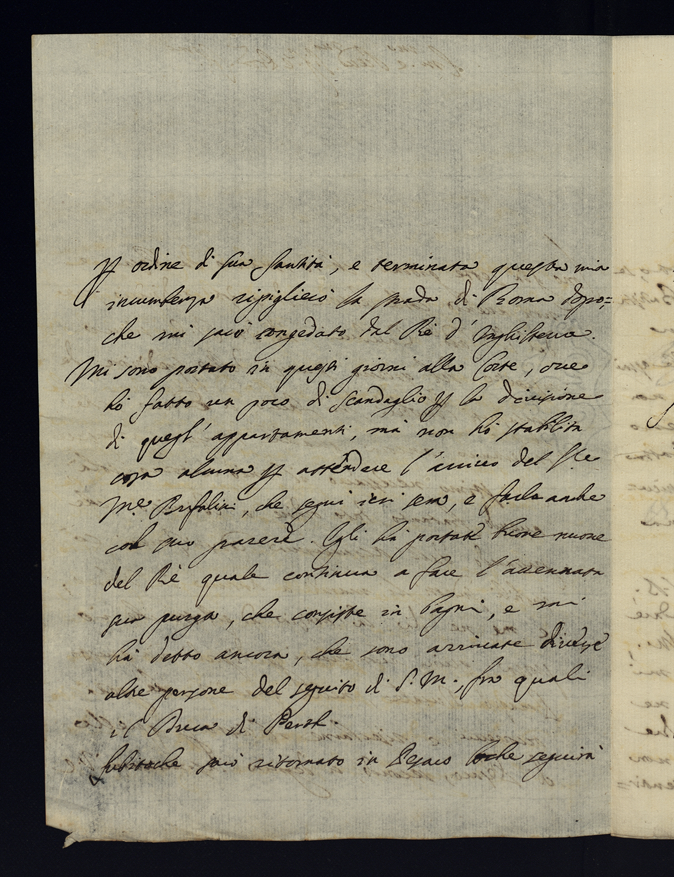 ꝑ ordine di Sua Santità, e terminata questa mia
incumbenza ripiglierò la strada di Roma dopo=
che mi sarò congedato dal Rè d'Inghilterra.
Mi sono portato in questi giorni alla Corte, ove
hò fatto un poco di scandaglio ꝑ la divisione
di quegl'appartamenti, mà non hò stabilita
cosa alcuna ꝑ attendere l'arrivo del
Bufalini, che seguì ieri sera, e farla anche
col suo parere. Egli hà portate buone nuove
del Rè quale continua a fare l'accennata
sua purga, che consiste in bagni, e mi
hà detto ancora, che sono arrivate diverse
altre persone del seguito di S. M., frà quali
il Duca di Perth.
Subitoche sarò ritornato in Pesaro che seguirà